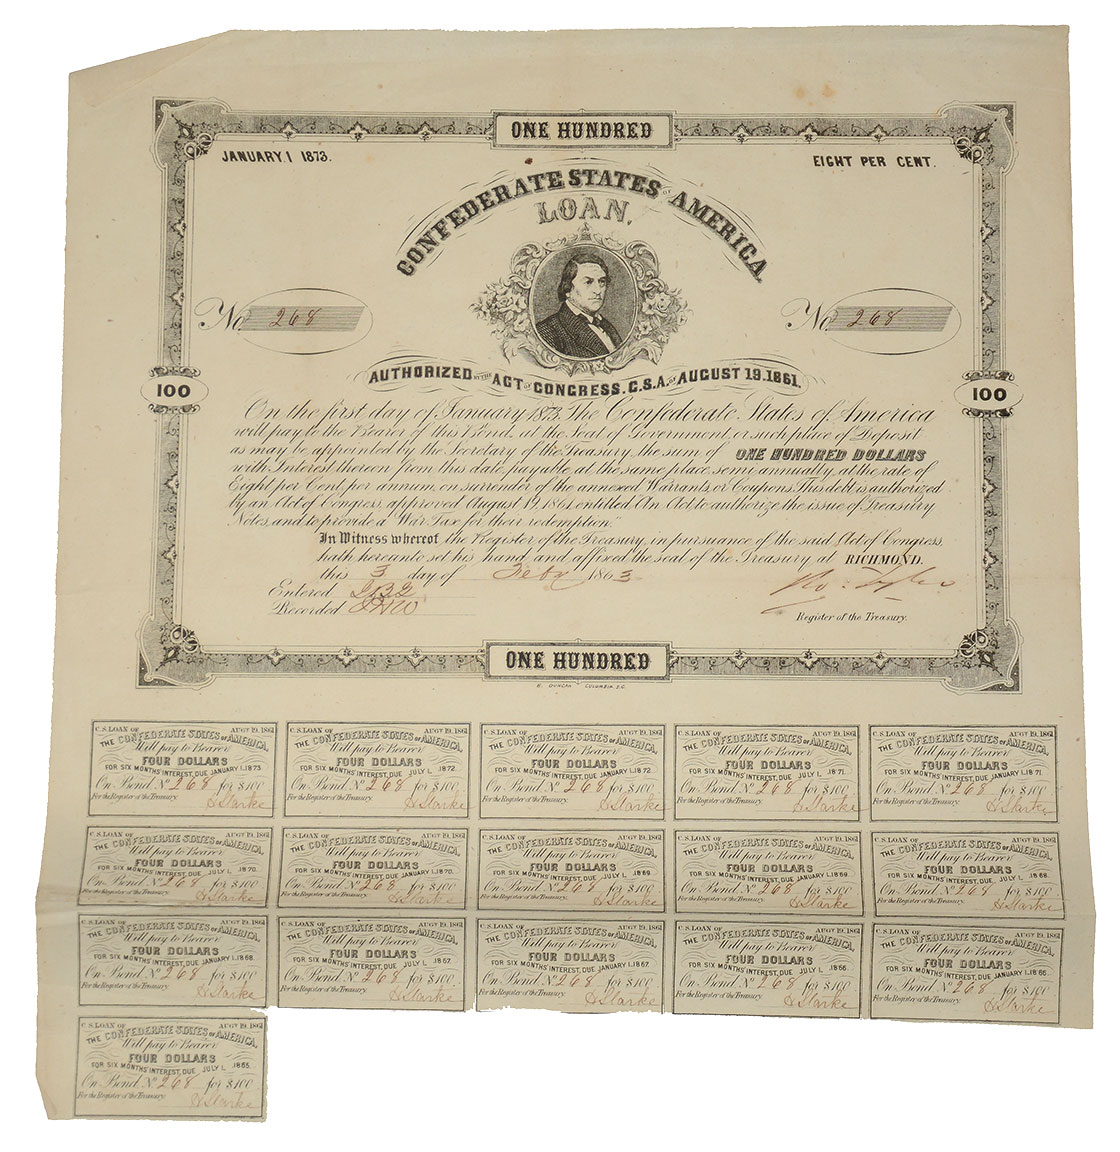 ONE HUNDRED
JANUARY 1 1873.
EIGHT PER CENT.
CONFEDERATE STATES OF AMERICA
LOAN,
No 268
No 268
AUTHORIZED BY THE ACT OF CONGRESS. C.S.A. OF AUGUST 19.1861.
100
100
On the first day of January 1873, The Confederate States of America
will pay to the Bearer of this Bond, at the Seat of Government, or such place of Deposit
as may be appointed by the Secretary of the Treasury, the sum of ONE HUNDRED DOLLARS
with Interest thereon from this date, payable at the same place, semi annually, at the rate of
Eight per Cent. per annum, on surrender of the annexed Warrants, or Coupons. This debt is authorized
by an Act of Congress approved August 19, 1861, entitled "An Act, to authorize the issue of Treasury
Notes, and to provide a War Tax for their redemption."
In Witness whereof the Register of the Treasury, in pursuance of the said Act of Congress,
hath hereunto set his hand and affixed the seal of the Treasury at RICHMOND.
this 3 day of Feby 1863
Entered
Recorded
Ro: Tyler
Register of the Treasury.
ONE HUNDRED
B. DUNCAN COLUMBIA S.C.
C.S. LOAN OF AUGT 19, 1861
THE CONFEDERATE STATES OF AMERICA,
Will pay to Bearer
FOUR DOLLARS
FOR SIX MONTHS' INTEREST, DUE JANUARY 1, 1873.
On Bond No 268 for $100
For the Register of the Treasury.
H Starke
C.S. LOAN OF AUGT 19, 1861
THE CONFEDERATE STATES OF AMERICA,
Will pay to Bearer
FOUR DOLLARS
FOR SIX MONTHS' INTEREST, DUE JULY 1, 1872.
On Bond No 268 for $100
For the Register of the Treasury.
H Starke
C.S. LOAN OF AUGT 19, 1861
THE CONFEDERATE STATES OF AMERICA,
Will pay to Bearer
FOUR DOLLARS
FOR SIX MONTHS' INTEREST, DUE JANUARY 1, 1872.
On Bond No 268 for $100
For the Register of the Treasury.
H Starke
C.S. LOAN OF AUGT 19, 1861
THE CONFEDERATE STATES OF AMERICA,
Will pay to Bearer
FOUR DOLLARS
FOR SIX MONTHS' INTEREST, DUE JULY 1, 1871.
On Bond No 268 for $100
For the Register of the Treasury.
H Starke
C.S. LOAN OF AUGT 19, 1861
THE CONFEDERATE STATES OF AMERICA,
Will pay to Bearer
FOUR DOLLARS
FOR SIX MONTHS' INTEREST, DUE JANUARY 1, 1871.
On Bond No 268 for $100
For the Register of the Treasury.
H Starke
C.S. LOAN OF AUGT 19, 1861
THE CONFEDERATE STATES OF AMERICA,
Will pay to Bearer
FOUR DOLLARS
FOR SIX MONTHS' INTEREST, DUE JULY 1, 1870.
On Bond No 268 for $100
For the Register of the Treasury.
H Starke
C.S. LOAN OF AUGT 19, 1861
THE CONFEDERATE STATES OF AMERICA,
Will pay to Bearer
FOUR DOLLARS
FOR SIX MONTHS' INTEREST, DUE JANUARY 1, 1870.
On Bond No 268 for $100
For the Register of the Treasury.
H Starke
C.S. LOAN OF AUGT 19, 1861
THE CONFEDERATE STATES OF AMERICA,
Will pay to Bearer
FOUR DOLLARS
FOR SIX MONTHS' INTEREST, DUE JULY 1, 1869.
On Bond No 268 for $100
For the Register of the Treasury.
H Starke
C.S. LOAN OF AUGT 19, 1861
THE CONFEDERATE STATES OF AMERICA,
Will pay to Bearer
FOUR DOLLARS
FOR SIX MONTHS' INTEREST, DUE JANUARY 1, 1869.
On Bond No 268 for $100
For the Register of the Treasury.
H Starke
C.S. LOAN OF AUGT 19, 1861
THE CONFEDERATE STATES OF AMERICA,
Will pay to Bearer
FOUR DOLLARS
FOR SIX MONTHS' INTEREST, DUE JULY 1, 1868.
On Bond No 268 for $100
For the Register of the Treasury.
H Starke
C.S. LOAN OF AUGT 19, 1861
THE CONFEDERATE STATES OF AMERICA,
Will pay to Bearer
FOUR DOLLARS
FOR SIX MONTHS' INTEREST, DUE JANUARY 1, 1868.
On Bond No 268 for $100
For the Register of the Treasury.
H Starke
C.S. LOAN OF AUGT 19, 1861
THE CONFEDERATE STATES OF AMERICA,
Will pay to Bearer
FOUR DOLLARS
FOR SIX MONTHS' INTEREST, DUE JULY 1, 1867.
On Bond No 268 for $100
For the Register of the Treasury.
H Starke
C.S. LOAN OF AUGT 19, 1861
THE CONFEDERATE STATES OF AMERICA,
Will pay to Bearer
FOUR DOLLARS
FOR SIX MONTHS' INTEREST, DUE JANUARY 1, 1867.
On Bond No 268 for $100
For the Register of the Treasury.
H Starke
C.S. LOAN OF AUGT 19, 1861
THE CONFEDERATE STATES OF AMERICA,
Will pay to Bearer
FOUR DOLLARS
FOR SIX MONTHS' INTEREST, DUE JULY 1, 1866.
On Bond No 268 for $100
For the Register of the Treasury.
H Starke
C.S. LOAN OF AUGT 19, 1861
THE CONFEDERATE STATES OF AMERICA,
Will pay to Bearer
FOUR DOLLARS
FOR SIX MONTHS' INTEREST, DUE JANUARY 1, 1866.
On Bond No 268 for $100
For the Register of the Treasury.
H Starke
C.S. LOAN OF AUGT 19, 1861
THE CONFEDERATE STATES OF AMERICA,
Will pay to Bearer
FOUR DOLLARS
FOR SIX MONTHS' INTEREST, DUE JULY 1, 1865.
On Bond No 268 for $100
For the Register of the Treasury.
H Starke